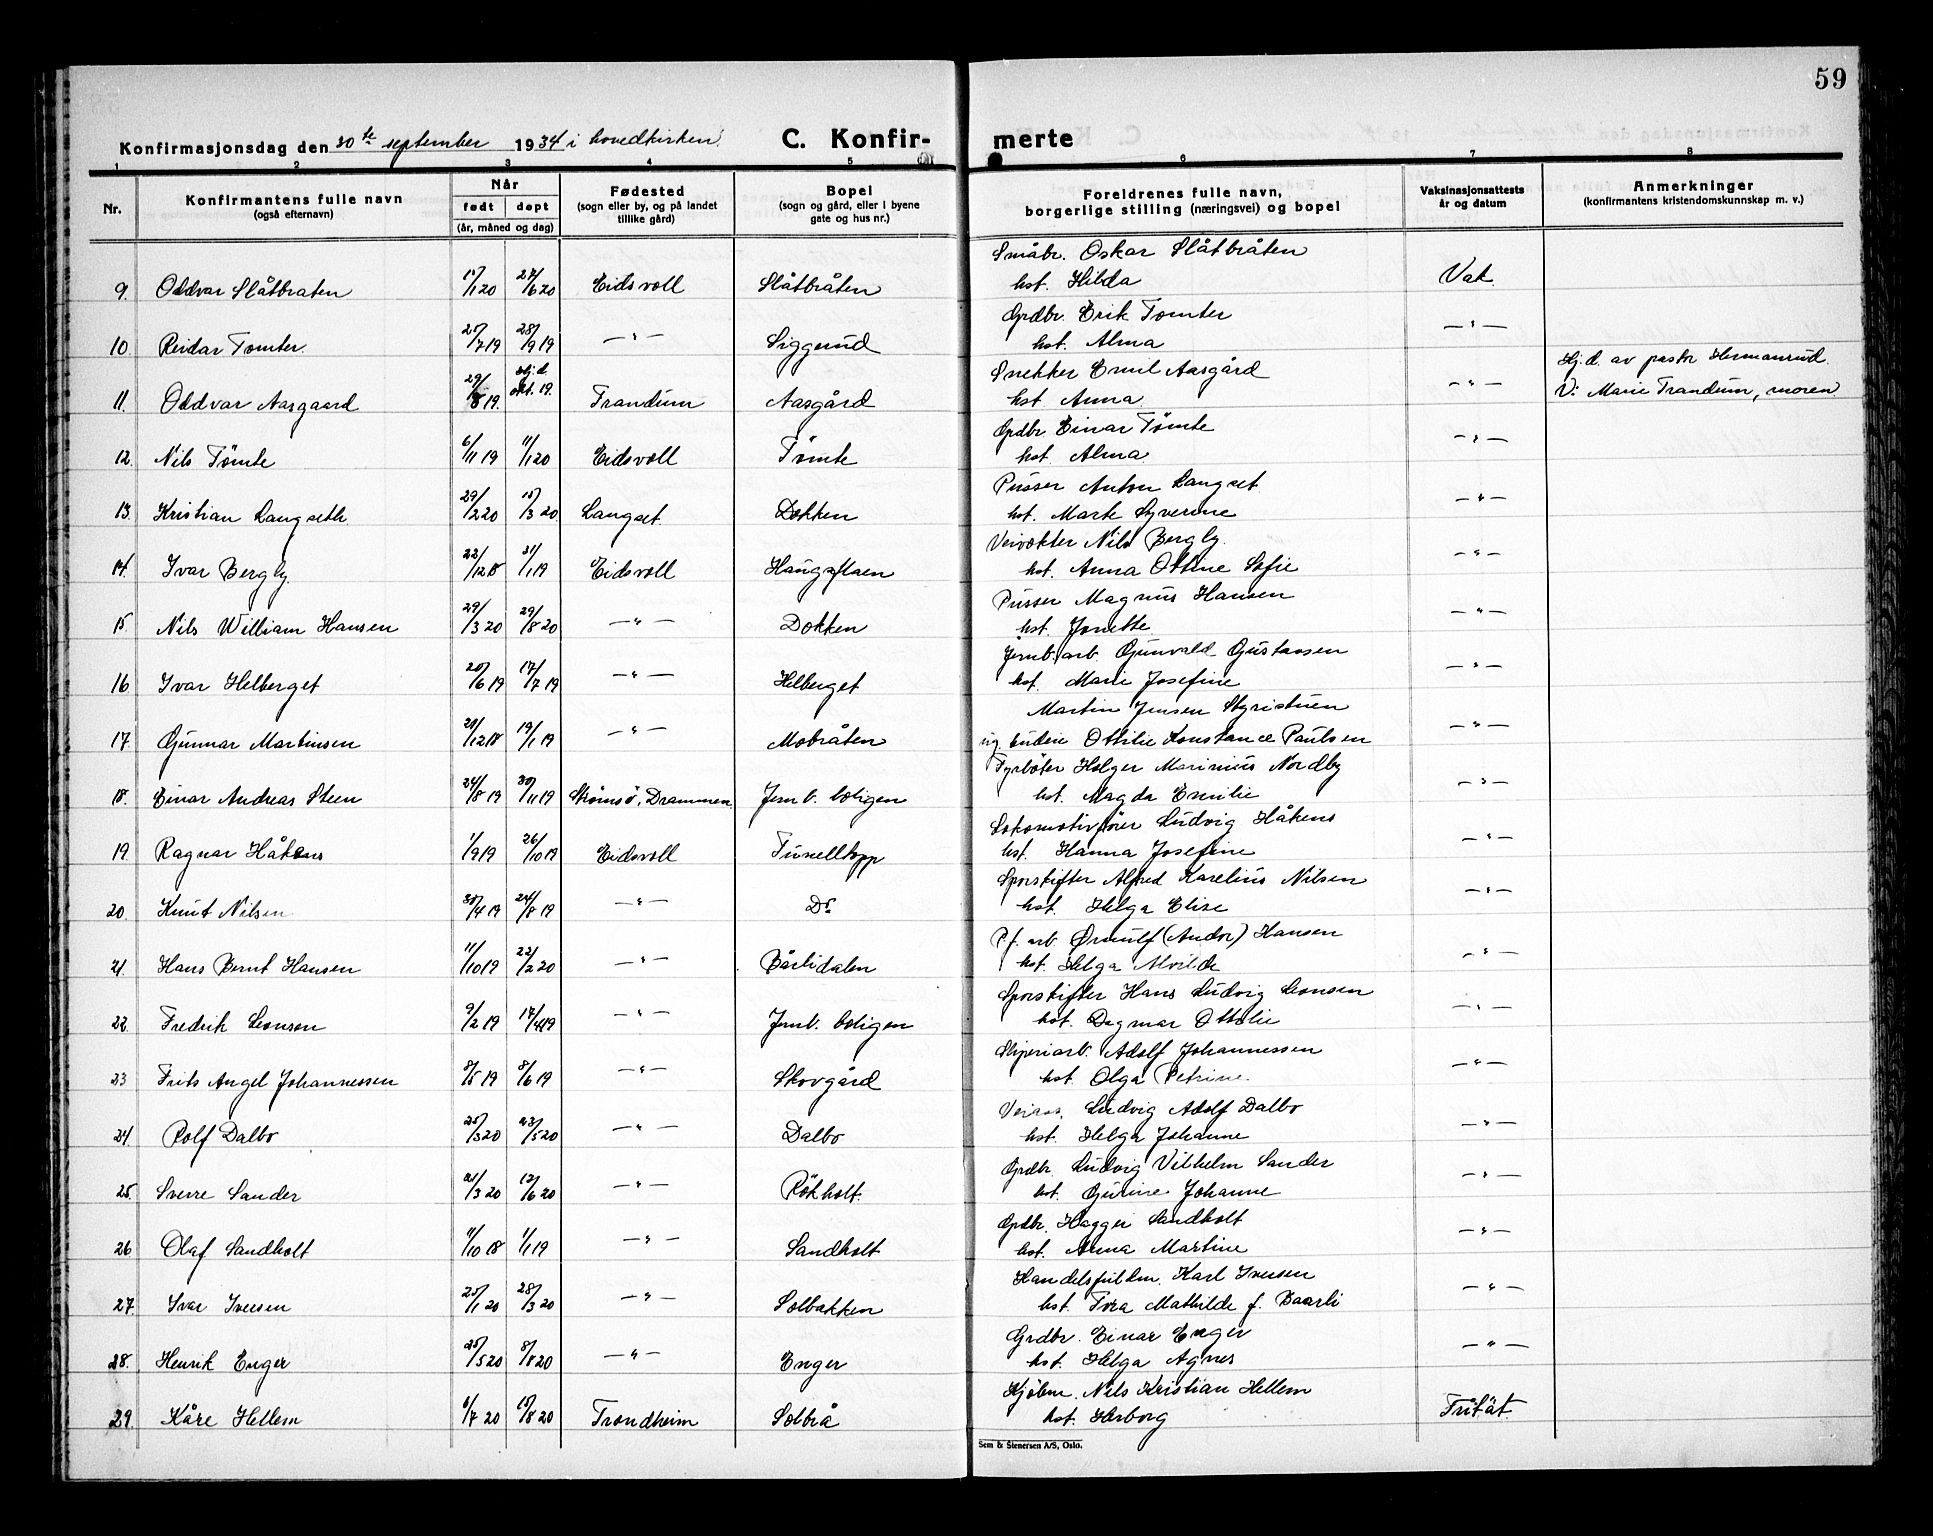 59
Konfirmasjonsdag den 30te september 1934 i hovedkirken. C. Konfirmerte
1 2 3 4 5 6 7 8
Nr. Konfirmantens fulle navn (også efternavn) Når født døpt (år, måned og dag) Fødested (sogn eller by, og på landet tillike gård) Bopel (sogn og gård, eller i byene gate og hus nr.) Foreldrenes fulle navn, borgerlige stilling (næringsvei) og bopel Vaksinasjonsattests år og datum Anmerkninger (konfirmantens kristendomskunnskap m. v.)
Småbr. Oskar Slåtbråten
9. Oddvar Slåtbraten 15/1 20 27/6 20 Eidsvoll Slåtbråten hst. Hilda Vak.
Grdbr. Erik Tomter
10. Reidar Tomter. 25/7 19 28/9 19 —"— Siggerud hst. Alma —"—
Snekker Emil Aasgård Hj.d. av pastor Hermanrud.
11. Oddvar Aasgaard 29/8 19. Hj.d. okt. 19. Trandum Aasgård hst. Anna —"— V: Marie Trandum, moren
Grdbr. Einar Tømte
12. Nils Tömte 6/11 19 11/1 20 Eidsvoll Tømte hst. Alma —"—
Pusser Anton Langset
13. Kristian Langseth 29/2 20 15/3 20 Langset. Dokken hst. Marte Syverine —"—
Veivokter Nils Bergly.
14. Ivar Bergly 22/12 18 31/1 19 Eidsvoll Haugsflaen hst. Anna Othine Sofie —"—
Pusser Magnus Hansen
15. Nils William Hansen 29/3 20 29/8 20 —"— Dokken hst. Jonette —"—
Jernb.arb. Gunvald Gustavsen
16 Ivar Helberget 20/6 19 17/7 19 —"— Helberget hst. Marie Josefine —"—
Martin Jensen Styristuen
17. Gunnar Martinsen 21/12 18 19/1 19 —"— Mobråten ug. budeie Ottilie Konstance Paulsen —"—
Fyrbøter Holger Marinius Nordby
18. Einar Andreas Steen 24/8 19 30/11 19 Strömsö, Drammen. Jernb. boligen hst. Magda Emilie —"—
Lokomotivfører Ludvig Håkens
19. Ragnar Håkens 1/9 19 26/10 19 Eidsvoll Tunelltopp hst. Hanna Josefine —"—
Sporskifter Alfred Karelius Nilsen
20. Knut Nilsen 30/4 19 24/8 19 —"— Do. hst. Helga Elise —"—
P.f. arb. Ørnulf (Andor) Hansen
21. Hans Bernt Hansen 11/10 19 22/2 20 —"— Bårlidalen hst. Helga Alvilde —"—
Sporskifter Hans Ludvig Leonsen
22. Fredrik Leonsen 9/2 19 17/4 19 —"— Jernb. boligen hst. Dagmar Ottilie —"—
Sliperiarb. Adolf Johannessen
23 Frits Angel Johannessen 8/5 19 8/6 19 —"— Skovgård hst. Olga Petrine. —"—
Ludvig Adolf Dalbo
24. Rolf Dalbo 25/3 20 23/5 20 —"— Dalbo hst. Helga Johanne —"—
Grdbr. Ludvig Vilhelm Sander
25. Sverre Sander 21/3 20 12/6 20 —"— Rökholt. hst. Gurine Johanne —"—
Grdbr. Hagger Sandholt
26 Olaf Sandholt 11/10 18 1/1 19 —"— Sandholt hst. Anna Martine —"—
Handelsfuldm. Karl Iversen
27. Ivar Iversen 25/1 20 28/3 20 —"— Solbakken hst. Tora Mathilde f. Baarli —"—
Grdbr. Einar Enger
28. Henrik Enger 25/5 20 8/8 20 —"— Enger hst. Helga Agnes —"—
Kjøbm. Nils Kristian Hellem
29. Kåre Hellem 1/7 20 15/8 20 Trondheim Solbrå hst. Herborg Fritat.
Sem & Stenersen A/S, Oslo.